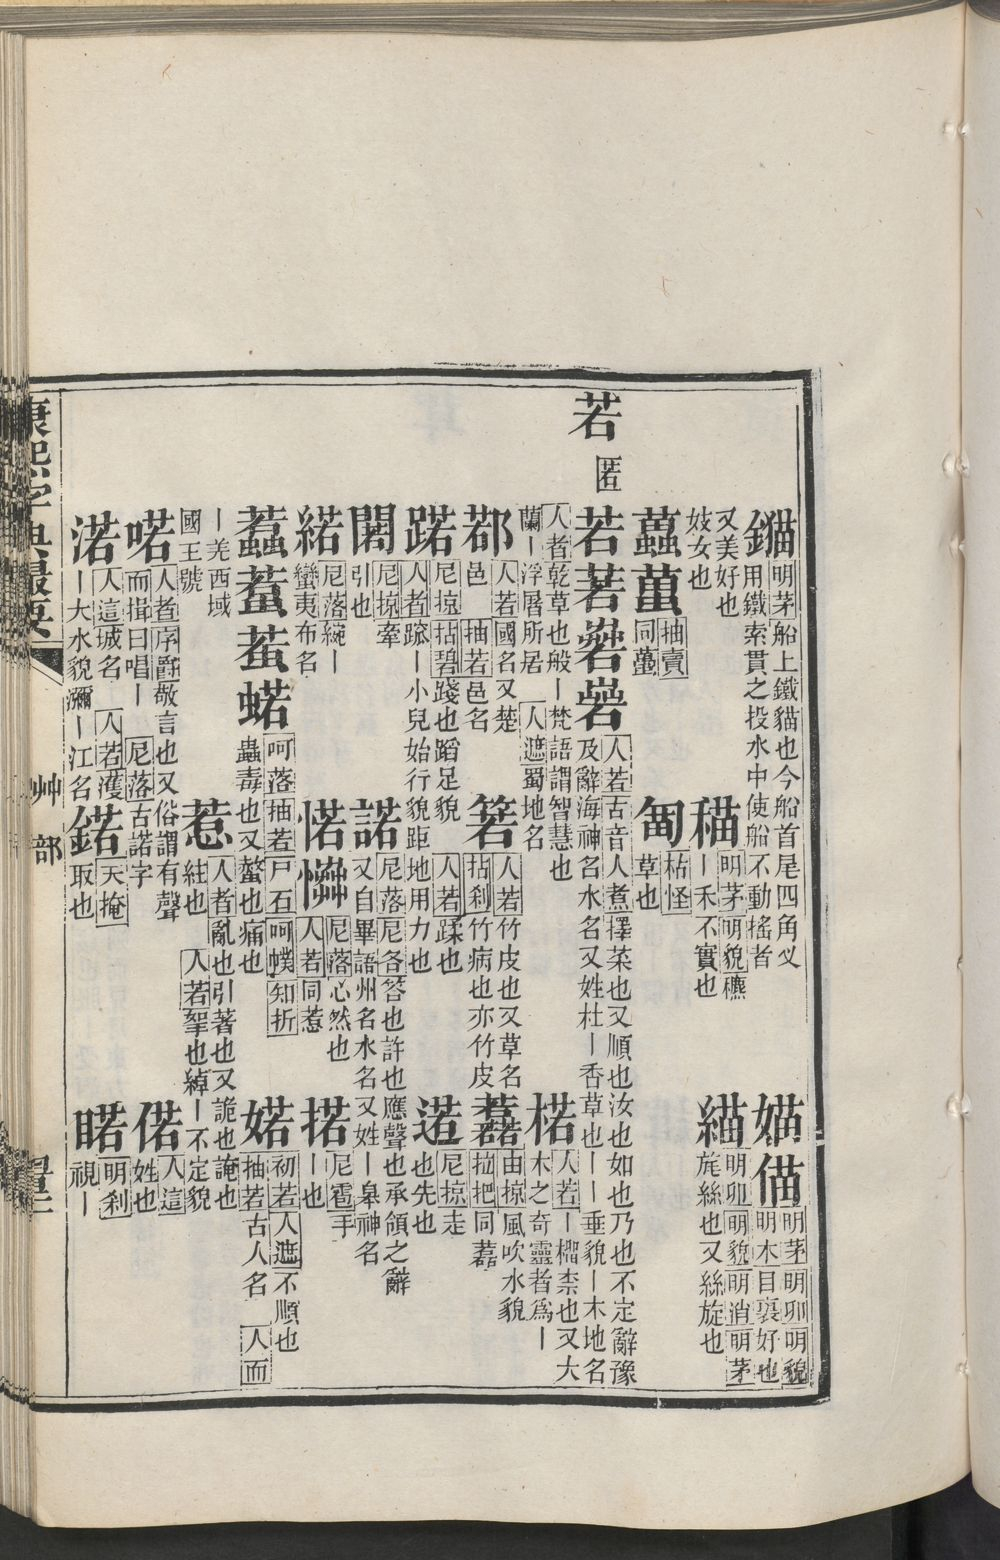 鏂 明茅 船上鐵貓也今船首尾四角叉
用鐵索貫之投水中使船不動搖者
媌 㑤 明茅 明卯 明貌
明木目裏好也
又美好也
妓女也
䅦 明茅 明貌 穮
丨禾不實也
緢 明卯 明貌 明消 明茅
旄絲也又絲旋也
蠆 萬 抽賣
同蠆
枯怪
草也
若
匿
若 人若 古音人煮 擇菜也又順也汝也如也乃也不定辭豫
及辭海神名水名又姓杜丨香草也丨丨垂貌丨木地名
人者 乾草也般丨梵語謂智慧也
蘭丨浮屠所居 人遮 蜀地名
楉 人若 丨榴柰也又大
木之奇靈者爲丨
鄀 人若 國名又楚
邑 抽若 邑名
箬 人若 竹皮也又草名
枯刹 竹病也亦竹皮
由掠 風吹水貌
拉把 同䔰
踞 尼掠 拈碧 踐也蹈足貌 人若 蹂也
人者 跡丨小兒始行貌距地用力也
逽 尼掠 走
也先也
闙 尼掠 牽
引也
諾 尼落 尼各 答也許也應聲也承領之辭
又自畢語州名水名又姓丨臯神名
尼落 綩丨
蠻夷布名
惹 㦡 尼落 心然也
人若 同惹
掿 尼雹 手
丨也
蠚 蠆 蛬 蝫 呵落 抽若 尸石 呵㡤 知折
蟲毒也又螫也痛也
婼 初若 人遮 不順也
抽若 古人名 人而
丨羌西域
國王號
惹 人者 亂也引著也又詭也諵也
絓也 人若 挐也綽丨不定貌
喏 人者 序爵 敬言也又俗謂有聲
而揖曰唱丨 尼落 古諾字
偌 人這
姓也
渃 人這 城名 人若 濩
丨大水貌瀰丨江名
鍩 天掩
取也
睰 明刹
視丨
康熙字典最要
艸部